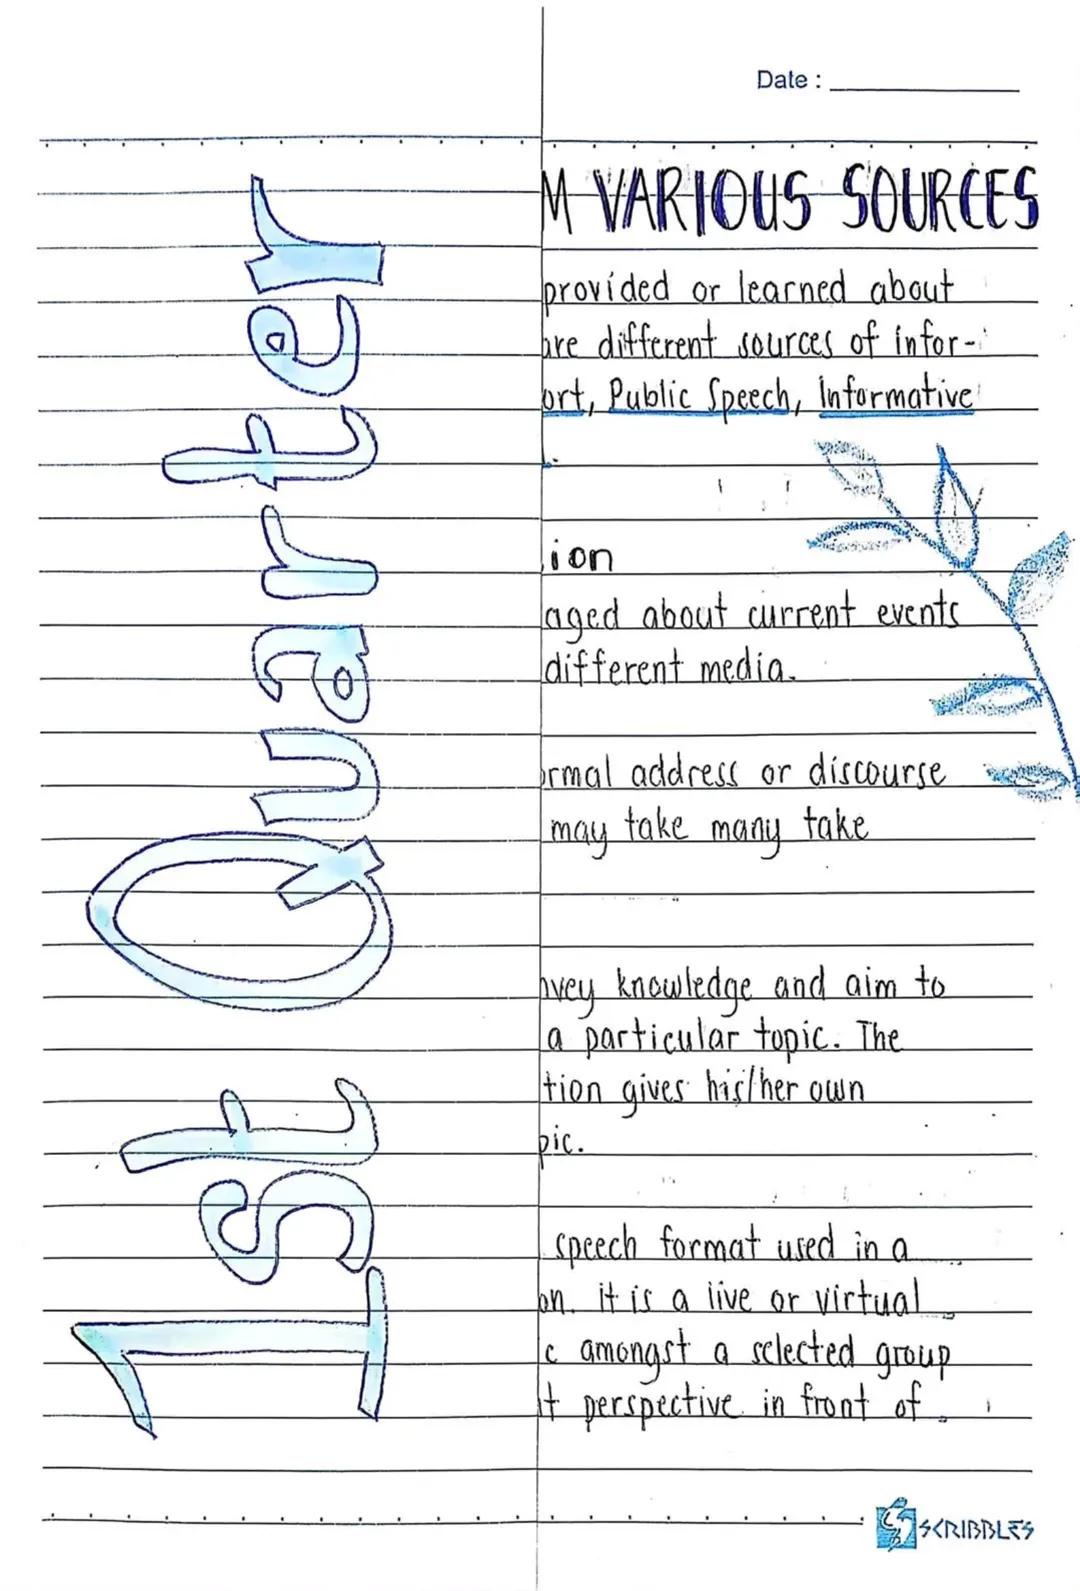 Date :
1st Quarter
M VARIOUS SOURCES
provided or learned about
are different sources of infor-
ort, Public Speech, Informative
ion
aged about current events
different media.
ormal address or discourse
may take many take
nvey knowledge and aim to
a particular topic. The
tion gives his/her own
pic.
speech format used in a
on. it is a live or virtual
c amongst a selected group
t perspective in front of
SCRIBBLES